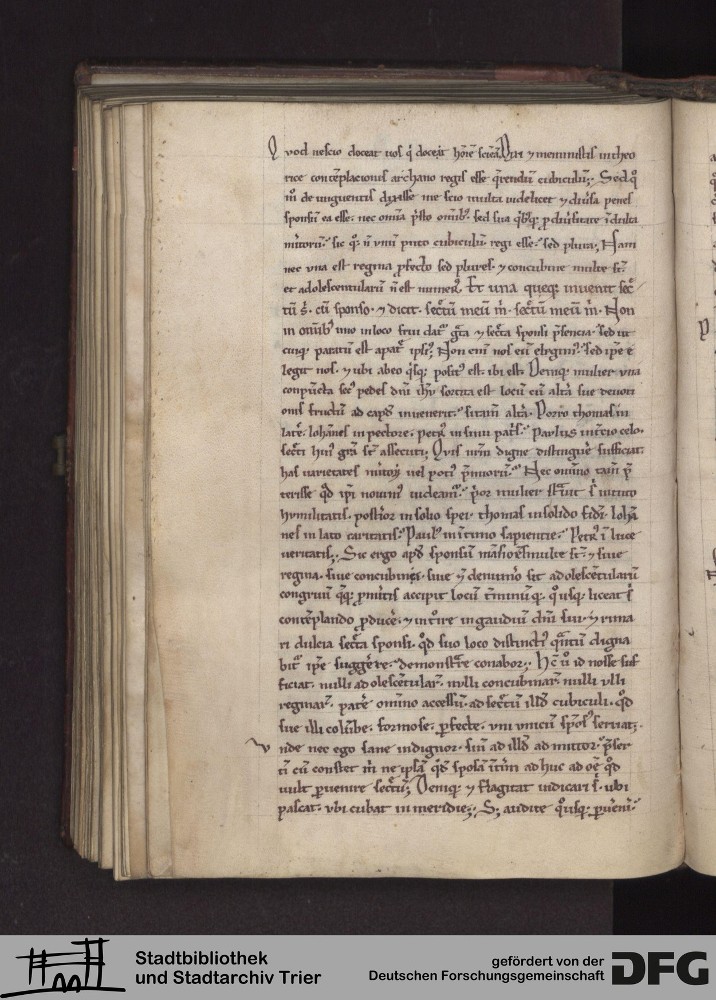 Quod nescio doceat uos q̇ docet hōiē sciēā. Qui ⁊ meministis in theo
rice contēplacionis archano regis esse q̄rendū cubiculū; Sed qͦ
m̄ de unguentis dixisse me scio multa uidelicet ⁊ diuersa penes
sponsū ea esse. nec omīa p̄sto omībꝰ. sed sua qͥbꝰqꝫ ꝓ diuersitate
mītorū. sic qꝫ n̄ unū puto cubiculū regi esse. sed plura; Nam
nec una est regina ꝓfecto sed plures. ⁊ concubine multe st̄.
et adolescentularū n̄ est numerꝰ. Et una queqꝫ inuenit sec̄
tū s̄. cū sponso. ⁊ dicit. sectū meū m̄. sectū meū m̄. Non
in omībꝰ uno in loco frui datᷣ gͣta ⁊ secta sponsi p̄sencia. sed ut
cuiqꝫ paratū est apͣ patrē ipsiꝰ; Non enī nos eū elegimꝰ. sed ipse e
legit nos. ⁊ ubi abeo qͥsqꝫ positꝰ est. ibi est. Deniqꝫ mulier una
conpūcta secꝰ pedes dn̄i ihū sortita est locū cū altā sue deuoti
onis fructū ad capd̄ inuenerit. sitam̄ altā. Porro thomas in
latē. Iohānes in pectore. petrꝰ in sinu patͥs. Paulus in tcio celo.
secti hui gͣa st̄ assecuti; Quis nr̄m digne distinguē sufficiat
has uarietates mītorū uel potiꝰ p̄miorū. Nec omīno tam̄ p̄
terisse qd̄ ip̄i nouimꝰ uideamꝰ. p̄or mulier stͣuit s̄ in tuto
humilitatis. postior in solio spei. thomas in solido fidei. Iohā
nes in lato caritatis. Paulꝰ in ītimo sapientie. Petrꝰ ī luce
ueritatis; Sic ergo apd̄ sponsū māsiones multe st̄. ⁊ siue
regina. siue concubine. siue ⁊ de numo sit adolescētularū
congruū qͥqꝫ ꝓ mītis accipit locū t̄minūqꝫ. qͦusqꝫ liceat s̄
contēplando ꝓducē. ⁊ intͦire in gaudiū dn̄i sui. ⁊ rima
ri dulcia secta sponsi. qd̄ suo loco distinctiꝰ qͣntū digna
bitᷣ ipse suggerere demonstrare conabor; Hc̄ ū id nosse suf
ficiat. nulli adolescētularͬ. nulli concubinarͬ nulli ulli
reginarͬ. patere omīno accessū. ad sectū illd̄ cubiculi. qd̄
sue illi colūbe. formose. ꝑfecte. uni unicū spōsꝰ seruat;
unde nec ego sane indignor. si n̄ ad illd̄ admittor. p̄ser
tī cū constet m̄ ne ipsā qd̄ spōsā ītim ad huc ad oē qd̄
uult ꝑuenire sectū; Deniqꝫ ⁊ flagitat indicari s̄. ubi
pascat. ubi cubat in meridie; S; audite qͦusqꝫ ꝑuenī.
Stadtbibliothek
und Stadtarchiv Trier
gefördert von der
Deutschen Forschungsgemeinschaft
DFG